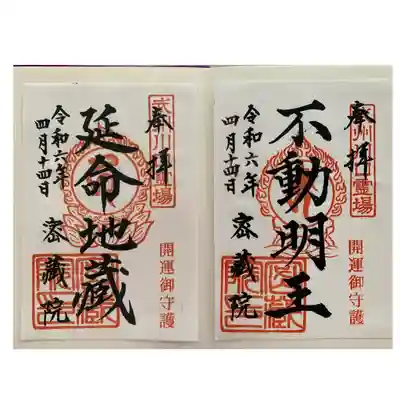 奉拝
開運御守護
不動明王
令和六年
四月十四日
密藏院
奉拝
開運御守護
延命地藏
令和六年
四月十四日
密藏院